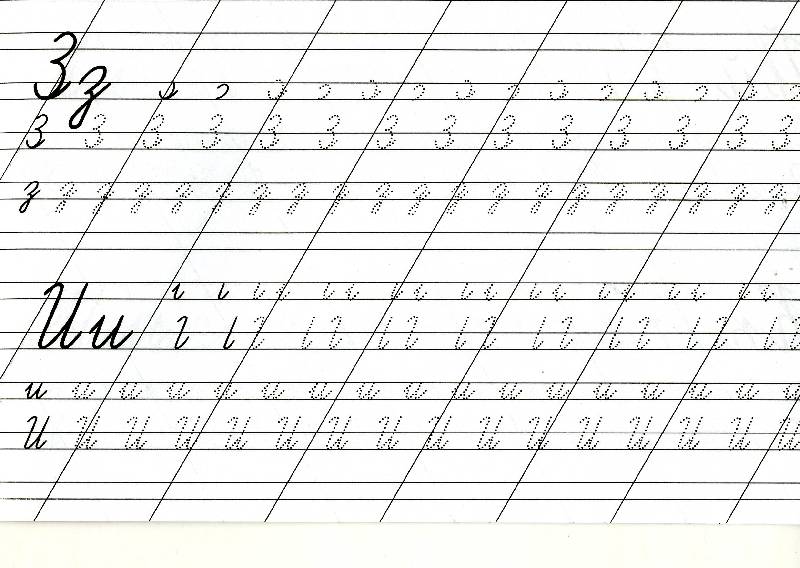 Зз
З З З З З З З З З З З З З З
з з з з з з з з з з з з з з з з з з з з
Ии
и и и и и и и и и и и и и и и и и
И И И И И И И И И И И И И И И И